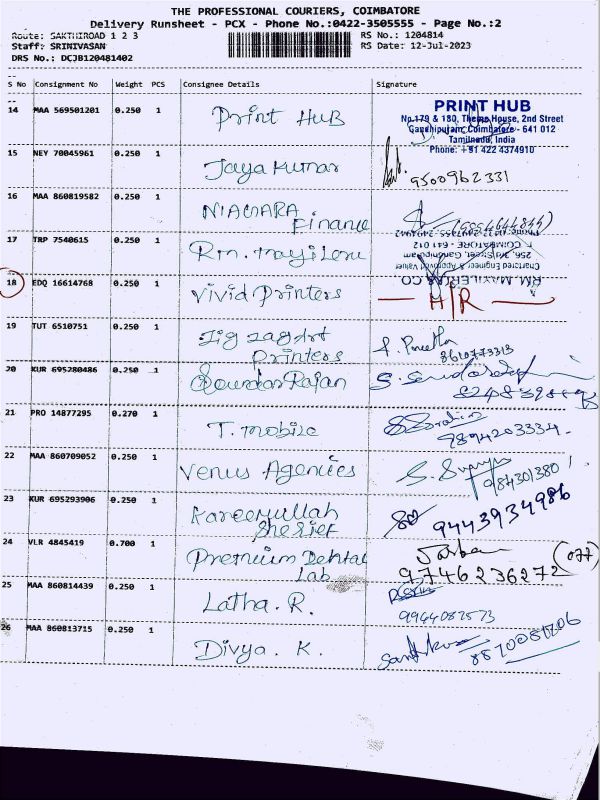 THE PROFESSIONAL COURIERS, COIMBATORE
Delivery Runsheet - PCX - Phone No.:0422-3505555 - Page No.:2
Route: SAKTHIROAD 1 2 3 RS No.: 1204814
Staff: SRINIVASAN RS Date: 12-Jul-2023
DRS No.: DCJB120481402
S No Consignment No Weight PCS Consignee Details Signature
14 MAA 569501201 0.250 1 Print HuB
PRINT HUB
No.179 & 180, Thomas House, 2nd Street
Gandhipuram, Coimbatore - 641 012
Tamilnadu, India
Phone: +91 422 4374910
15 NEY 70045961 0.250 1 Jaya Kumar 9500962331
16 MAA 860819582 0.250 1 NIAGARA Finance
17 TRP 7540615 0.250 1 Rm. mayileru
RM. MAYILERI & CO.
Chartered Engineer & Approved Valuer
256, 3rd Street, Gandhipuram
COIMBATORE - 641 012
18 EDQ 16614768 0.250 1 Vivid Printers H/R
19 TUT 6510751 0.250 1 Zig Zag Art
Printers
8610773313
20 KUR 695280486 0.250 1 Soundar Rajan
21 PRO 14877295 0.270 1 T. mobile 9894203334
22 MAA 860709052 0.250 1 Venus Agencies 984301380
23 KUR 695293906 0.250 1 Kareemullah
Sherief
9443934986
24 VLR 4845419 0.700 1 Premium Dental
Lab
9746236272 (077)
25 MAA 860814439 0.250 1 Latha. R. 9944082573
26 MAA 860813715 0.250 1 Divya. K.